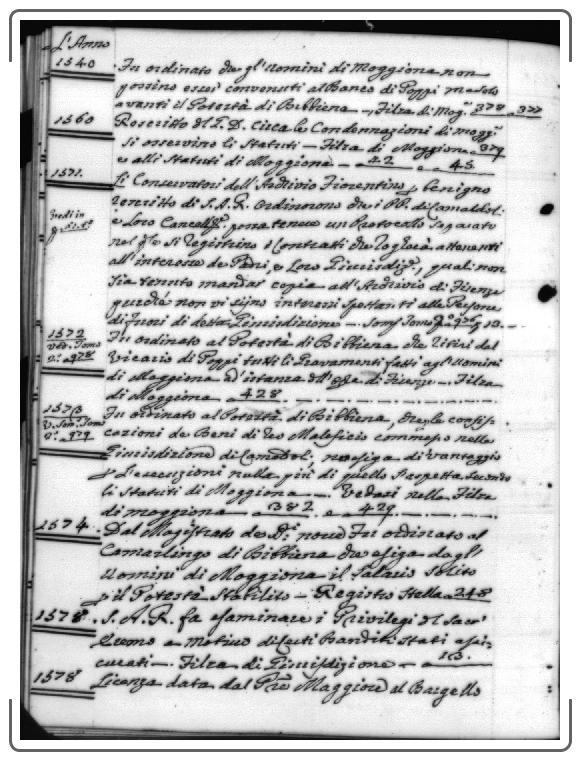 L'Anno
1540
Fu ordinato che gl'Uomini di Moggiona non
possino esser convenuti al Banco di Poppi ma solo
avanti il Potestà di Bibbiena — Filza di Mog.ª 378 e 377
1560
Rescritto del S. D. circa le Condennazioni di Mogg.ª
si osservino li Statuti — Filza di Moggiona 379
e alli Statuti di Moggiona — 42 e 45
1571.
Li Conservatori dell'Archivio Fiorentino, p benigno
rescritto di S. A. R. ordinorono che i PP. di Camaldoli
e Loro Cancell.e possa tenere un Protocollo separato
nel q.le si registrino i Contratti che loro attenenti
all'interesse de Pdri, e Loro Giurisdiz.e, quali non
sia tenuto mandar copia all'Archivio di Firenze
purchè non vi sijno interessi spettanti alle Persone
di fuori di detta Giurisdizione — Som. Tomo 13.
1572
Vedi Tomo
n.° 978
Fu ordinato al Potestà di Bibbiena che ritiri del
Vicario di Poppi tutti li Gravamenti fatti agl'Uomini
di Moggiona ad'istanza di Firenze — Filza
di Moggiona 428
1573
V. Som. Tomo
n.° 979
Fu ordinato al Potestà di Bibbiena, che le confis-
cazioni de Beni di Reo Maleficio commesso nella
Giurisdizione di Camald.i, non esiga di vantaggio
p l'esecuzioni nulla più di quello s'aspetta secondo
li Statuti di Moggiona —. Vedasi nella Filza
di Moggiona 382 e 429
1574.
Dal Magistrato de D.i nove Fu ordinato al
Camarlingo di Bibbiena che esiga dagl'
Uomini di Moggiona il Salario solito
p il Potestà Stabilito — Registro Stella 248
1578
S. A. R. fa esaminare i Privilegi del Sacr'
Eremo a Motivo di certi Banditi stati assi-
curati —. Filza di Giurisdizione — 13.
1578
Licenza data dal P.re Maggiore al Bargello